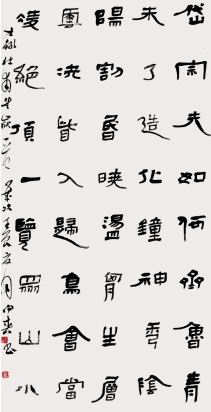 岱宗夫如何齊魯青
未了造化鐘神秀陰
陽割昏曉盪胷生層
雲決眥入歸鳥會當
凌絕頂一覽眾山小